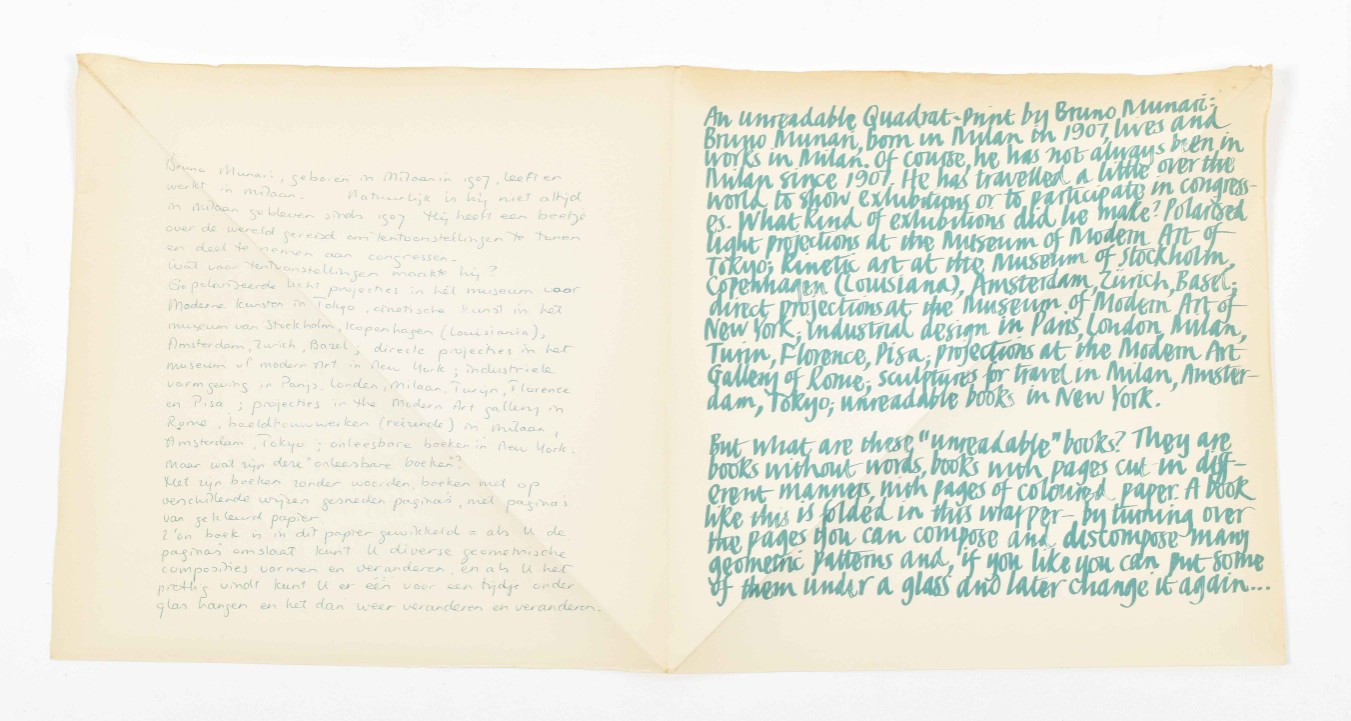 Bruno Munari, geboren in Milaan in 1907, leeft en
werkt in Milaan. Natuurlijk is hij niet altijd
in Milaan gebleven sinds 1907 Hij heeft een beetje
over de wereld gereisd om tentoonstellingen te tonen
en deel te nemen aan congressen.
Wat voor tentoonstellingen maakte hij?
Gepolariseerde licht projecties in hét museum voor
Moderne kunsten in Tokyo, cinetische kunst in het
museum van Stockholm, Kopenhagen (Louisiania),
Amsterdam, Zurich, Bazel; directe projecties in het
museum of modern Art in New York; industriele
vormgeving in Parijs, Londen, Milaan, Turijn, Florence
en Pisa; projecties in the Modern Art gallery in
Rome, beeldhouwwerken (reizende) in Milaan,
Amsterdam, Tokyo; onleesbare boeken in New York.
Maar wat zijn deze "onleesbare boeken"?
Het zijn boeken zonder woorden, boeken met op
verschillende wijzen gesneden pagina's, met pagina's
van gekleurd papier
Zo'n boek is in dit papier gewikkeld = als U de
pagina's omslaat kunt U diverse geometrische
composities vormen en veranderen, en als U het
prettig vindt kunt U er één voor een tijdje onder
glas hangen en het dan weer veranderen en veranderen.
An unreadable Quadrat-Print by Bruno Munari:
Bruno Munari, born in Milan in 1907, lives and
works in Milan. Of course, he has not always been in
Milan since 1907. He has travelled a little over the
world to show exhibitions or to participate in congress-
es. What kind of exhibitions did he make? Polarized
light projections at the Museum of Modern Art of
Tokyo; kinetic art at the Museum of Stockholm,
Copenhagen (Louisiana), Amsterdam, Zürich, Basel;
direct projections at the Museum of Modern Art of
New York; industrial design in Paris, London, Milan,
Turin, Florence, Pisa; projections at the Modern Art
Gallery of Rome; sculptures for travel in Milan, Amster-
dam, Tokyo; unreadable books in New York.
But what are these "unreadable" books? They are
books without words, books with pages cut in diff-
erent manners, with pages of coloured paper. A book
like this is folded in this wrapper – by turning over
the pages you can compose and discompose many
geometric patterns and, if you like you can put some
of them under a glass and later change it again...